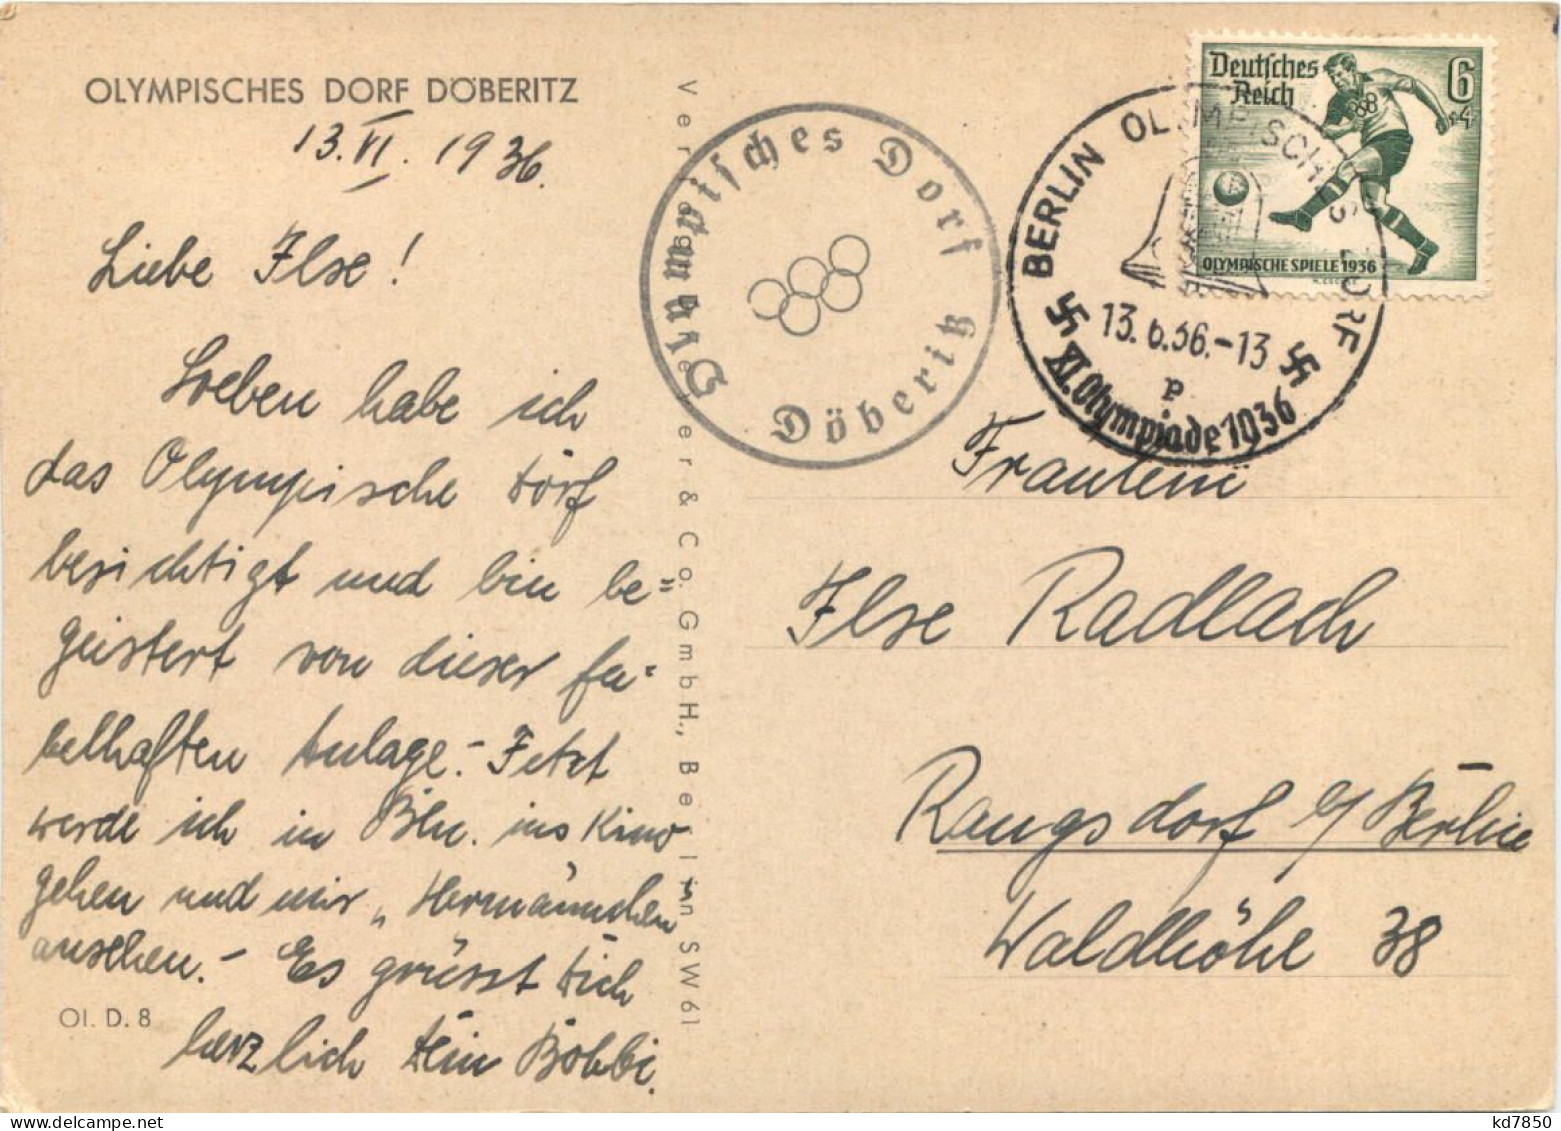 OLYMPISCHES DORF DÖBERITZ
13. VI. 1936.
Liebe Ilse!
Soeben habe ich
das Olympische Dorf
besichtigt und bin be=
geistert von dieser fa=
belhaften Anlage.- Jetzt
werde ich in Bln. ins Kino
gehen und mir „Hermännchen
ansehen.- Es grüsst Dich
herzlich Dein Bobbi.
Ol. D. 8
GmbH., Berlin SW 61
Olympisches Dorf
Döberitz
BERLIN OLYMPISCHES DORF
13.6.36.-13
P
XI. Olympiade 1936
Deutsches
Reich
6
+4
OLYMPISCHE SPIELE 1936
Fräulein
Ilse Radlach
Rangsdorf b/Berlin
Waldhöhe 38
kd7850